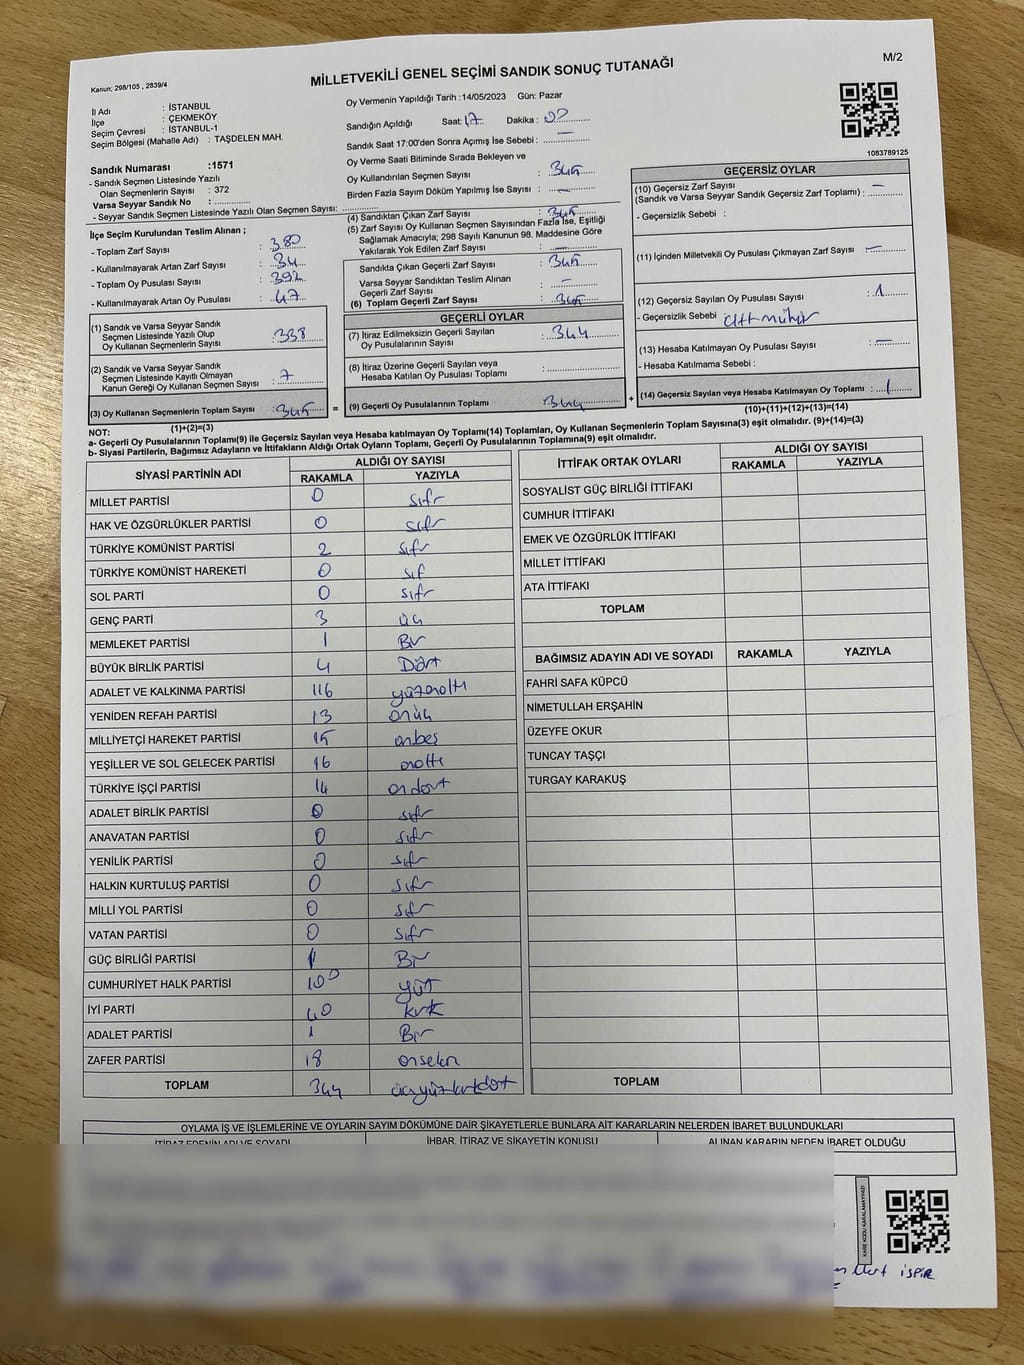 Kanun; 298/105 , 2839/4
MİLLETVEKİLİ GENEL SEÇİMİ SANDIK SONUÇ TUTANAĞI
M/2
İl Adı : İSTANBUL
İlçe : ÇEKMEKÖY
Seçim Çevresi : İSTANBUL-1
Seçim Bölgesi (Mahalle Adı) : TAŞDELEN MAH.
Sandık Numarası :1571
- Sandık Seçmen Listesinde Yazılı
Olan Seçmenlerin Sayısı : 372
Varsa Seyyar Sandık No :
- Seyyar Sandık Seçmen Listesinde Yazılı Olan Seçmen Sayısı:
İlçe Seçim Kurulundan Teslim Alınan ;
- Toplam Zarf Sayısı : 380
- Kullanılmayarak Artan Zarf Sayısı : 34
- Toplam Oy Pusulası Sayısı : 392
- Kullanılmayarak Artan Oy Pusulası : 47
(1) Sandık ve Varsa Seyyar Sandık
Seçmen Listesinde Yazılı Olup
Oy Kullanan Seçmenlerin Sayısı : 338
(2) Sandık ve Varsa Seyyar Sandık
Seçmen Listesinde Kayıtlı Olmayan
Kanun Gereği Oy Kullanan Seçmen Sayısı : 7
(3) Oy Kullanan Seçmenlerin Toplam Sayısı : 345 =
(1)+(2)=(3)
Oy Vermenin Yapıldığı Tarih :14/05/2023 Gün: Pazar
Sandığın Açıldığı Saat: 17 Dakika :
Sandık Saat 17:00'den Sonra Açımış İse Sebebi : —
Oy Verme Saati Bitiminde Sırada Bekleyen ve
Oy Kullandırılan Seçmen Sayısı : 345
Birden Fazla Sayım Döküm Yapılmış İse Sayısı : —
(4) Sandıktan Çıkan Zarf Sayısı : 345
(5) Zarf Sayısı Oy Kullanan Seçmen Sayısından Fazla İse, Eşitliği
Sağlamak Amacıyla; 298 Sayılı Kanunun 98. Maddesine Göre
Yakılarak Yok Edilen Zarf Sayısı : —
Sandıkta Çıkan Geçerli Zarf Sayısı : 345
Varsa Seyyar Sandıktan Teslim Alınan
Geçerli Zarf Sayısı : —
(6) Toplam Geçerli Zarf Sayısı : 345
GEÇERLİ OYLAR
(7) İtiraz Edilmeksizin Geçerli Sayılan
Oy Pusulalarının Sayısı : 344
(8) İtiraz Üzerine Geçerli Sayılan veya
Hesaba Katılan Oy Pusulası Toplamı :
(9) Geçerli Oy Pusulalarının Toplamı 344 +
1083789125
GEÇERSİZ OYLAR
(10) Geçersiz Zarf Sayısı —
(Sandık ve Varsa Seyyar Sandık Geçersiz Zarf Toplamı) :
- Geçersizlik Sebebi :
(11) İçinden Milletvekili Oy Pusulası Çıkmayan Zarf Sayısı : —
(12) Geçersiz Sayılan Oy Pusulası Sayısı : 1
- Geçersizlik Sebebi mühür
(13) Hesaba Katılmayan Oy Pusulası Sayısı : —
- Hesaba Katılmama Sebebi :
(14) Geçersiz Sayılan veya Hesaba Katılmayan Oy Toplamı : 1
(10)+(11)+(12)+(13)=(14)
NOT:
a- Geçerli Oy Pusulalarının Toplamı(9) ile Geçersiz Sayılan veya Hesaba katılmayan Oy Toplamı(14) Toplamları, Oy Kullanan Seçmenlerin Toplam Sayısına(3) eşit olmalıdır. (9)+(14)=(3)
b- Siyasi Partilerin, Bağımsız Adayların ve İttifakların Aldığı Ortak Oyların Toplamı, Geçerli Oy Pusulalarının Toplamına(9) eşit olmalıdır.
SİYASİ PARTİNİN ADI ALDIĞI OY SAYISI
RAKAMLA YAZIYLA
MİLLET PARTİSİ 0 sıfır
HAK VE ÖZGÜRLÜKLER PARTİSİ 0 sıfır
TÜRKİYE KOMÜNİST PARTİSİ 2 sıfır
TÜRKİYE KOMÜNİST HAREKETİ 0 sıf
SOL PARTİ 0 sıfır
GENÇ PARTİ 3 üç
MEMLEKET PARTİSİ 1 Bir
BÜYÜK BİRLİK PARTİSİ 4 Dört
ADALET VE KALKINMA PARTİSİ 116 yüzonaltı
YENİDEN REFAH PARTİSİ 13 onüç
MİLLİYETÇİ HAREKET PARTİSİ 15 onbeş
YEŞİLLER VE SOL GELECEK PARTİSİ 16 onaltı
TÜRKİYE İŞÇİ PARTİSİ 14 ondört
ADALET BİRLİK PARTİSİ 0 sıfır
ANAVATAN PARTİSİ 0 sıfır
YENİLİK PARTİSİ 0 sıfır
HALKIN KURTULUŞ PARTİSİ 0 sıfır
MİLLİ YOL PARTİSİ 0 sıfır
VATAN PARTİSİ 0 sıfır
GÜÇ BİRLİĞİ PARTİSİ 1 Bir
CUMHURİYET HALK PARTİSİ 100 yüz
İYİ PARTİ 40 kırk
ADALET PARTİSİ 1 Bir
ZAFER PARTİSİ 18 onsekiz
TOPLAM 344 üçyüzkırkdört
İTTİFAK ORTAK OYLARI ALDIĞI OY SAYISI
RAKAMLA YAZIYLA
SOSYALİST GÜÇ BİRLİĞİ İTTİFAKI
CUMHUR İTTİFAKI
EMEK VE ÖZGÜRLÜK İTTİFAKI
MİLLET İTTİFAKI
ATA İTTİFAKI
TOPLAM
BAĞIMSIZ ADAYIN ADI VE SOYADI RAKAMLA YAZIYLA
FAHRİ SAFA KÜPCÜ
NİMETULLAH ERŞAHİN
ÜZEYFE OKUR
TUNCAY TAŞÇI
TURGAY KARAKUŞ
TOPLAM
OYLAMA İŞ VE İŞLEMLERİNE VE OYLARIN SAYIM DÖKÜMÜNE DAİR ŞİKAYETLERLE BUNLARA AİT KARARLARIN NELERDEN İBARET BULUNDUKLARI
İTİRAZ EDENİN ADI VE SOYADI İHBAR, İTİRAZ VE ŞİKAYETİN KONUSU ALINAN KARARIN NEDEN İBARET OLDUĞU
KARE KODU KARALAMAYINIZ!
İSPİR